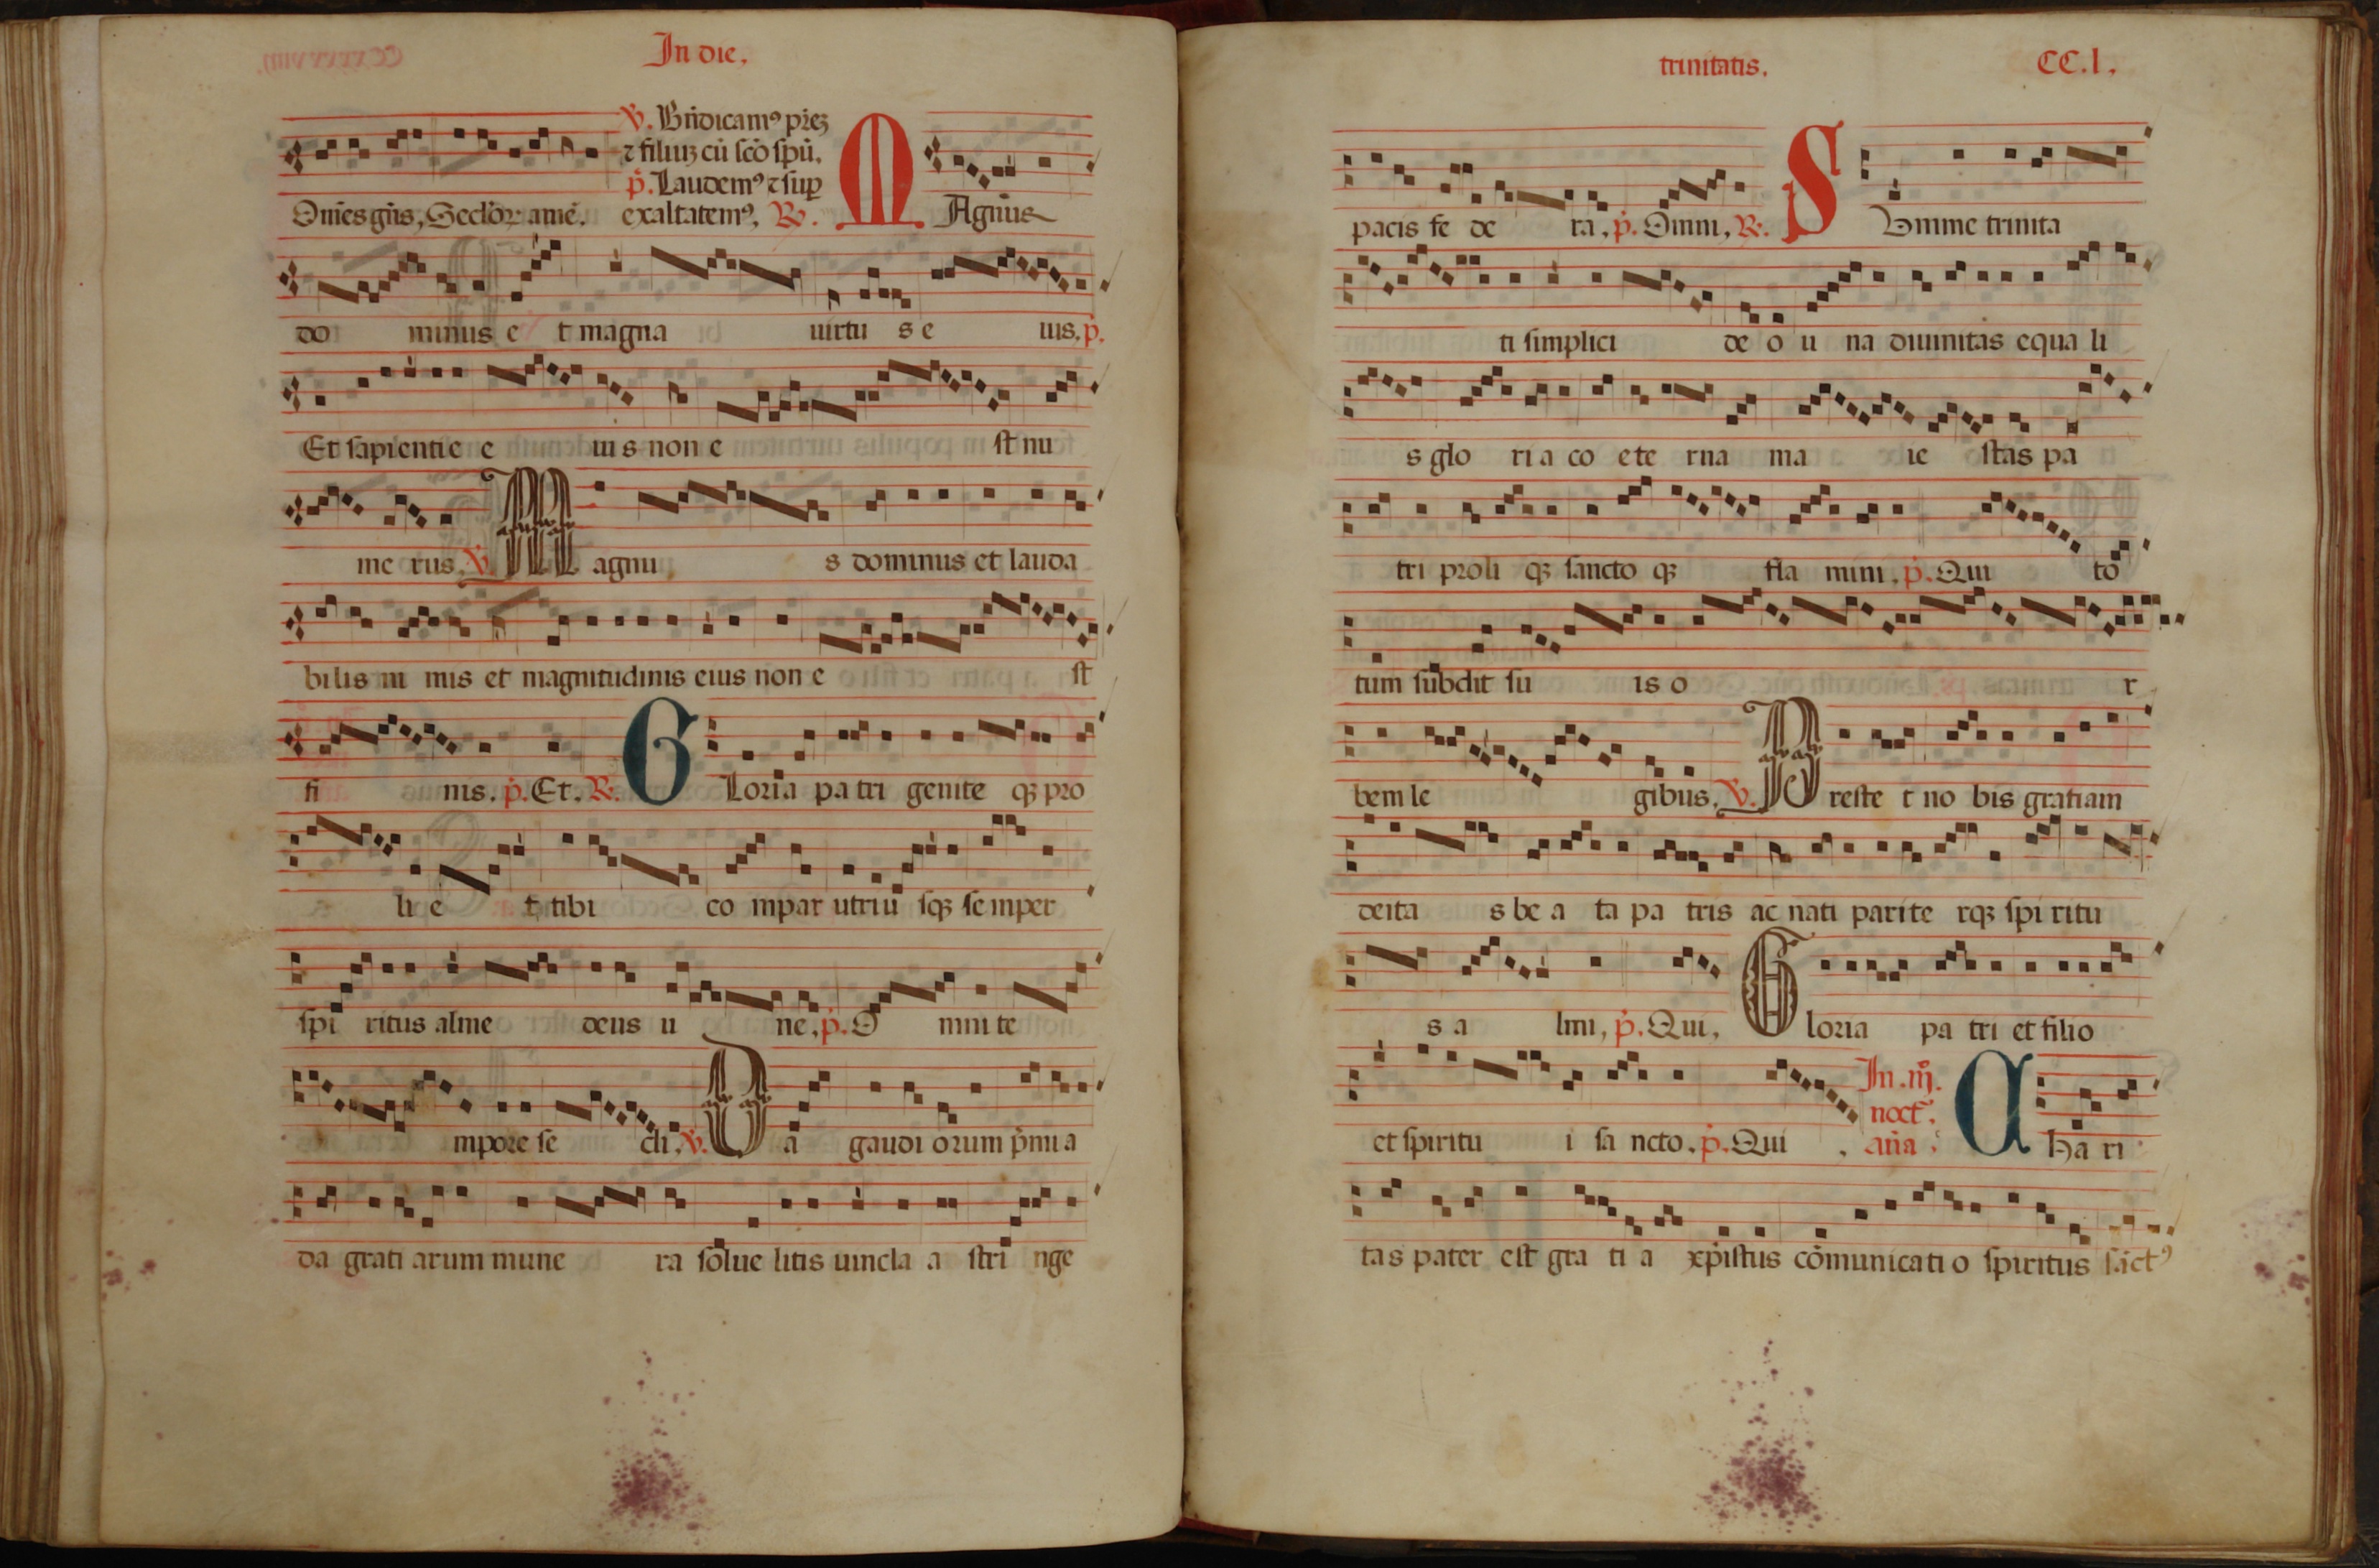 In die.
℣. Bn̄dicamꝰ pr̄eꝫ
⁊ filiuꝫ cū ſc̄o ſpū.
p̄. Laudemꝰ ⁊ ſuꝑ
Om̄es gn̄s, Seclo℞ amē. exaltatemꝰ, ℟. M Agnus
do minus e t magna uirtu s e ius. p̄.
Et sapientie e ius non e ſt nu
me rus. ℣. M agnu s dominus et lauda
bilis ni mis et magnitudinis eius non e ſt
fi nis. p̄. Et. ℟. G Loria pa tri genite qꝫ pro
li e t tibi co mpar utriu ſqꝫ ſe mper
ſpi ritus alme deus u ne, p̄. O mni te
mpore se cli, ℣. D a gaudi orum p̄mi a
da grati arum mune ra solue litis uincla a ſtri nge
trinitatis. CC.l.
pacis fe de ra, p̄. Omni, ℟. S Umme trinita
ti ſimplici de o u na diuinitas equa li
s glo ri a co ete rna ma ie ſtas pa
tri proli qꝫ ſancto qꝫ fla mini, p̄. Qui to
tum ſubdit ſu is o r
bem le gibus. ℣. P reſte t no bis gratiam
deita s be a ta pa tris ac nati parite rqꝫ ſpi ritu
s a lmi, p̄. Qui, G loria pa tri et filio
et ſpiritu i ſa ncto. p̄. Qui
In .iij.
noct̄.
an̄a
C ha ri
tas pater eſt gra ti a xp̄iſtus cōmunicati o ſpiritus ſāctꝰ